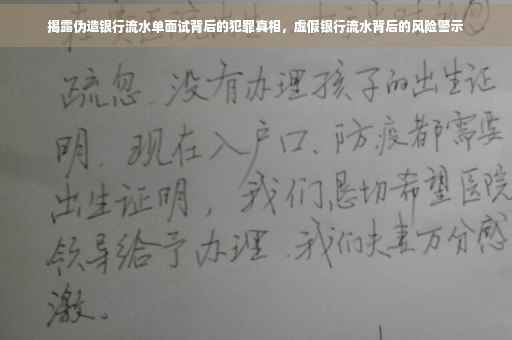 揭露伪造银行流水单面试背后的犯罪真相，虚假银行流水背后的风险警示
疏忽、没有办理孩子的出生证
明、现在入户口、防疫都需要
出生证明，我们恳切希望医院
领导给予办理、我们夫妻万分感
激。